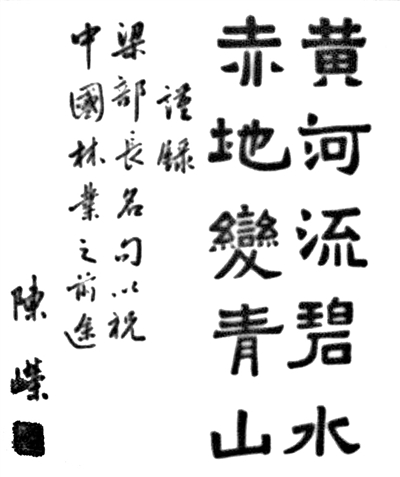 黃河流碧水
赤地變青山
謹録
梁部長名句以祝
中國林業之前途
陳嶸